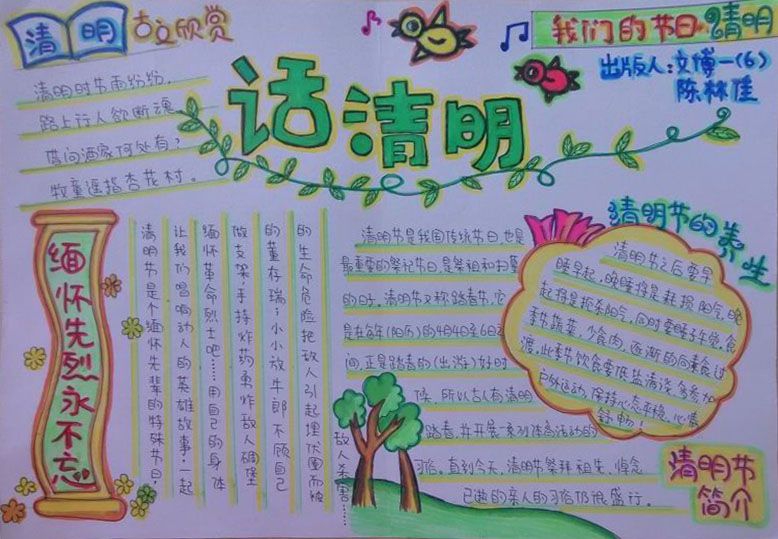 清明
古文欣赏
我们的节日 清明
出版人：文博一(6)
陈林佳
话清明
清明时节雨纷纷，
路上行人欲断魂
借问酒家何处有？
牧童遥指杏花村。
缅怀先烈永不忘
清明节是个缅怀先辈的特殊节日，
让我们唱响动人的英雄故事，一起
缅怀革命烈士吧……用自己的身体
做支架，手持炸药勇炸敌人碉堡
的董存瑞；小小放牛郎不顾自己
的生命危险把敌人引起埋伏圈而被
敌人杀害……
清明节是我国传统节日，也是
最重要的祭祀节日，是祭祖和扫墓
的日子。清明节又称踏青节，它
是在每年(阳历)的4月4日至6日之
间，正是踏青的(出游)好时
候，所以古人有清明
踏青，并开展一系列体育活动的
习俗。直到今天，清明节祭拜祖先，悼念
已逝的亲人的习俗仍很盛行。
清明节的养生
清明节之后要早
睡早起，晚睡将是耗损阳气，晚
起将是扼杀阳气，同时要睡子午觉。食
季节蔬菜，少食肉，逐渐的向素食过
渡，此季节饮食要低盐清淡。多参加
户外运动，保持心态平稳，心情
舒畅！
清明节
简介